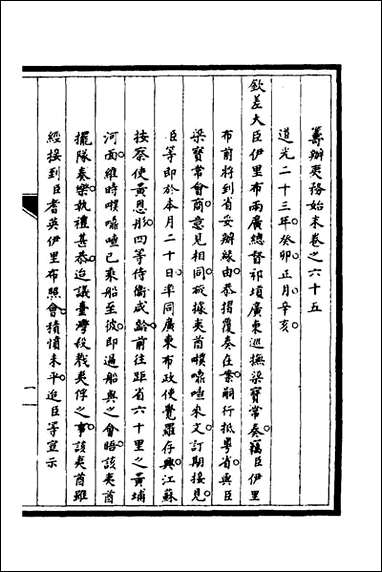 籌辦夷務始末卷之六十五
道光二十三年癸卯正月辛亥
欽差大臣伊里布兩廣總督祁𡎴廣東巡撫梁寶常奏竊臣伊里
布前將到省妥辦緣由恭摺覆奏在案嗣行抵粵省與臣
梁寶常會商意見相同祇據夷酋㗶𠸄喳來文訂期接見
臣等即於本月二十日率同廣東布政使覺羅存興江蘇
按察使黃恩彤四等侍衛咸齡前往距省六十里之黃埔
河面維時㗶𠸄喳已乘船至彼即過船與之會晤該夷酋
擺隊奏樂執禮甚恭迨議臺灣殺戮夷俘之事該夷酋雖
經接到臣耆英伊里布照會積憤未平迨臣等宣示
一